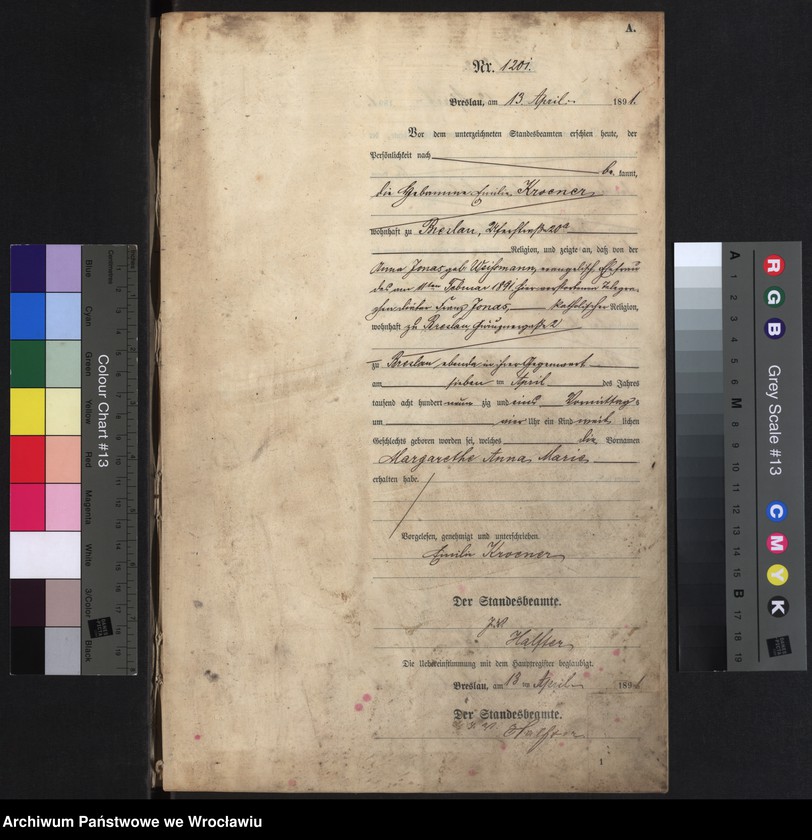 A.
Nr. 1201.
Breslau, am 13 April 1891.
Vor dem unterzeichneten Standesbeamten erschien heute, der
Persönlichkeit nach
be kannt,
die Hebamme Emilie Kroener
wohnhaft zu Breslau, Uferstraße 20a
Religion, und zeigte an, daß von der
Anna Jonas geb. evangelisch Ehefrau
des am Februar 1891 hier verstorbenen
Franz Jonas, katholischer Religion,
wohnhaft zu Breslau 2
zu Breslau ebenda in ihrer Gegenwart
am sieben ten April des Jahres
tausend acht hundert neun zig und eins Vormittags
um vier Uhr ein Kind weib lichen
Geschlechts geboren worden sei, welches die Vornamen
Margarethe Anna Marie
erhalten habe.
Vorgelesen, genehmigt und unterschrieben.
Emilie Kroener
Der Standesbeamte.
J. V.
Halfter
Die Uebereinstimmung mit dem Hauptregister beglaubigt.
Breslau, am 13 ten April 1891
Der Standesbeamte.
Halfter
1
Colour Chart #13
Blue
Cyan
Green
Yellow
Red
Magenta
White
3/Color
Black
Centimetres
Inches
Grey Scale #13
R
G
B
C
M
Y
K
A
1
2
3
4
5
6
M
8
9
10
11
12
13
14
15
B
17
18
19
Archiwum Państwowe we Wrocławiu